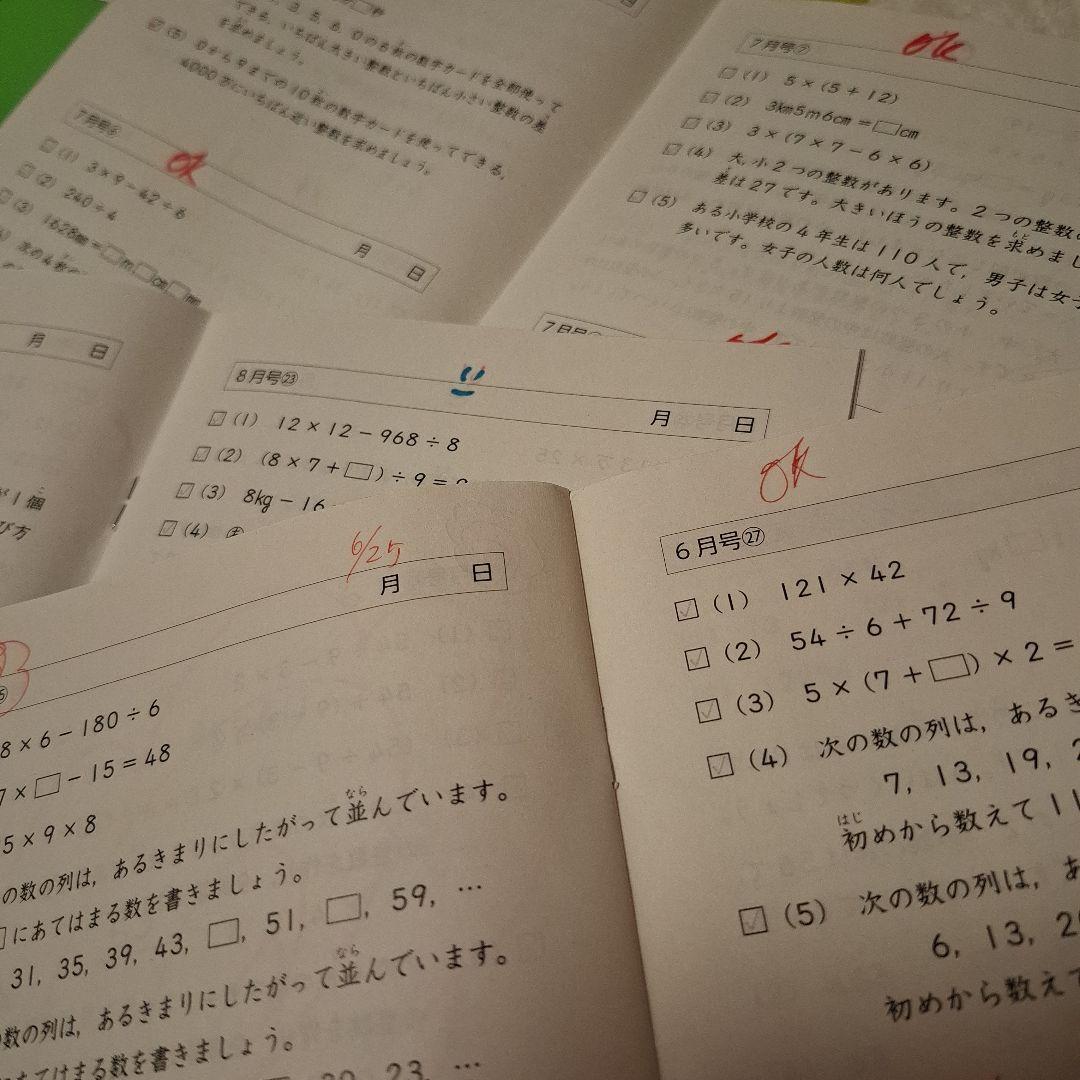 3, 5, 6, 0の6枚の数字カードを全部使って
できる、いちばん大きい整数といちばん小さい整数の差
を求めましょう。
(5) 0から9までの10枚の数字カードを使ってできる,
4000万にいちばん近い整数を求めましょう。
日
7月号⑥
ok
月 日
(1) 3×9-42÷6
(2) 240÷4
(3) 1628mm=□m□cm□mm
7月号⑦
ok
(1) 5×(5+12)
(2) 3km5m6cm=□cm
(3) 3×(7×7-6×6)
(4) 大,小2つの整数があります。2つの整数の
差は27です。大きいほうの整数を求めまし
(5) ある小学校の4年生は110人で,男子は女子
多いです。女子の人数は何人でしょう。
月 日
が1個
び方
8月号㉓
月 日
(1) 12×12-968÷8
(2) (8×7+□)÷9=
(3) 8kg-16
(4)
6/25
月 日
8×6-180÷6
7×□-15=48
5×9×8
の数の列は,あるきまりにしたがって並んでいます。
なら
□にあてはまる数を書きましょう。
31, 35, 39, 43, □, 51, □, 59, …
数の列は,あるきまりにしたがって並んでいます。
なら
にあてはまる数を書きましょう。
23, …
ok
6月号㉗
(1) 121×42
(2) 54÷6+72÷9
(3) 5×(7+□)×2=
(4) 次の数の列は,あるき
7, 13, 19,
初めから数えて11
はじ
(5) 次の数の列は,あ
6, 13, 2
初めから数えて